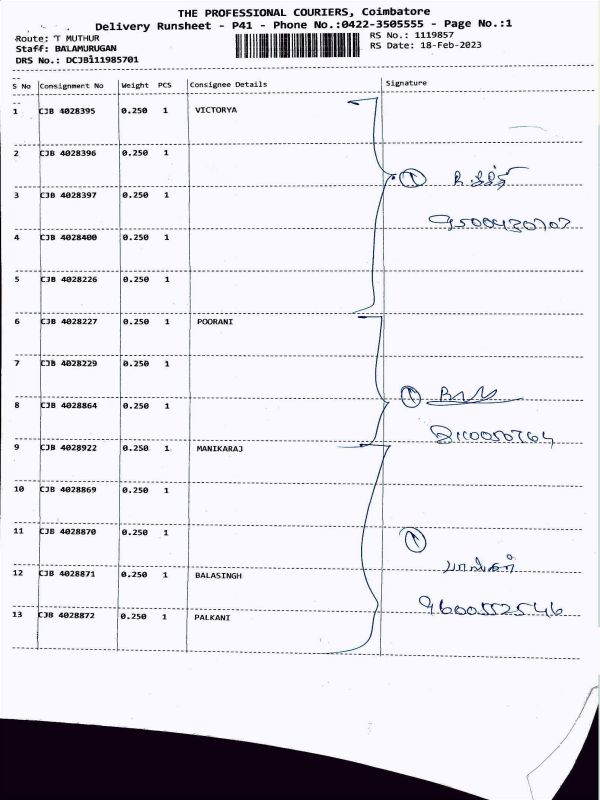 THE PROFESSIONAL COURIERS, Coimbatore
Delivery Runsheet - P41 - Phone No.:0422-3505555 - Page No.:1
Route: 'T MUTHUR RS No.: 1119857
Staff: BALAMURUGAN RS Date: 18-Feb-2023
DRS No.: DCJB111985701
S No Consignment No Weight PCS Consignee Details Signature
1 CJB 4028395 0.250 1 VICTORYA
2 CJB 4028396 0.250 1
3 CJB 4028397 0.250 1
9500430707
4 CJB 4028400 0.250 1
5 CJB 4028226 0.250 1
6 CJB 4028227 0.250 1 POORANI
7 CJB 4028229 0.250 1
8 CJB 4028864 0.250 1
8110050764
9 CJB 4028922 0.250 1 MANIKARAJ
10 CJB 4028869 0.250 1
11 CJB 4028870 0.250 1
12 CJB 4028871 0.250 1 BALASINGH
9600552546
13 CJB 4028872 0.250 1 PALKANI